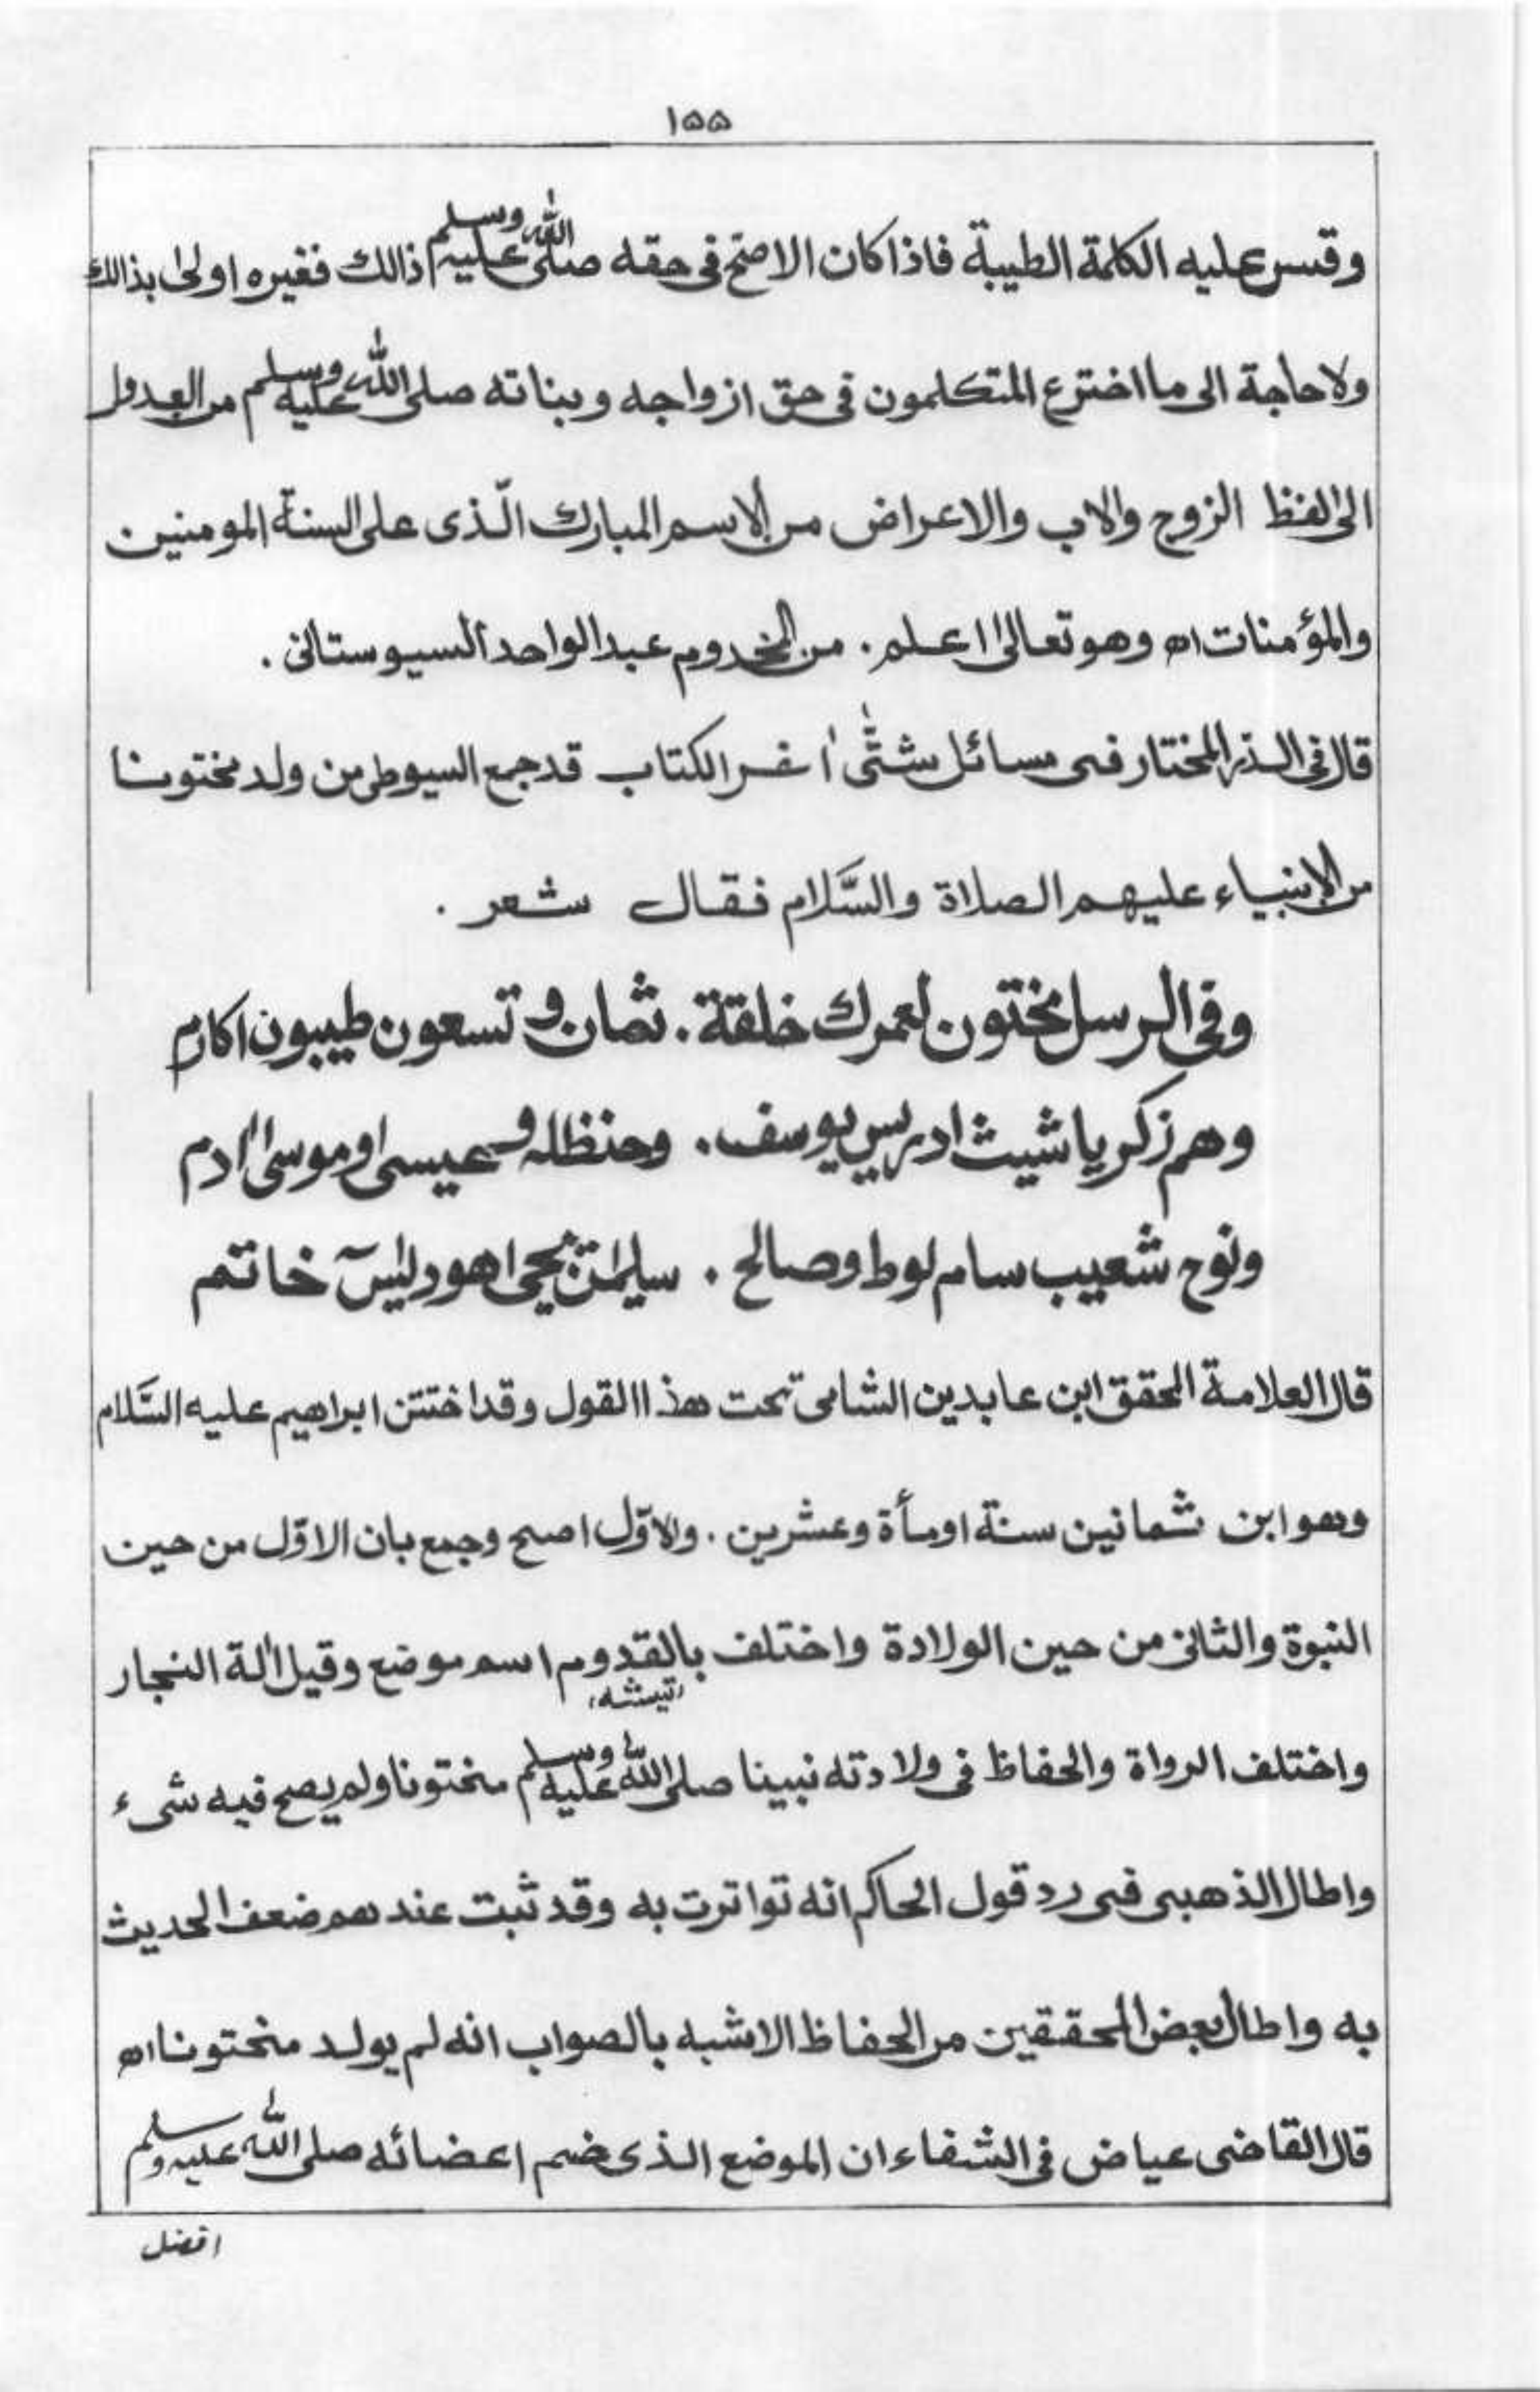 ۱۵۵
وقس عليه الكلمة الطيبة فاذا كان الاصح فى حقه صلى الله عليه وسلم ذالك فغيره اولى بذالك
ولا حاجة الى ما اخترع المتكلمون فى حق ازواجه وبناته صلى الله عليه وسلم من العدول
الى لفظ الزوج والاب والاعراض من الاسم المبارك الّذى على السنة المومنين
والمؤمنات اھ وهو تعالىٰ اعلم. من المخدوم عبد الواحد السيوستانى.
قال فى الدر المختار فى مسائل شتّٰى اٰخر الكتاب قد جمع السيوطى من ولد مختونا
من الانبياء عليهم الصلاة والسَّلام فقال شعر .
وفى الرسل مختون لعمرك خلقة . ثمان و تسعون طيبون اكارم
وهم زكريا شيث ادريس يوسف . وحنظله و عيسى و موسىٰ اٰدم
ونوح شعيب سام لوط وصالح . سليمٰن يحيى هود يٰسٓ خاتم
قال العلامة المحقق ابن عابدين الشامى تحت هذا القول وقد اختتن ابراهيم عليه السَّلام
وهو ابن ثمانين سنة او مأة وعشرين . والاوّل اصح وجمع بان الاوّل من حين
النبوة والثانى من حين الولادة واختلف بالقدوم اسم موضع وقيل اٰلة النجار
(تيشه)
واختلف الرواة والحفاظ فى ولادته نبينا صلى الله عليه وسلم مختونا ولم يصح فيه شىء
واطال الذهبى فى رد قول الحاكم انه تواترت به وقد ثبت عندهم ضعف الحديث
به واطال بعض المحققين من الحفاظ الاشبه بالصواب انه لم يولد مختونا اھ
قال القاضى عياض فى الشفاء ان الموضع الذى ضم اعضائه صلى الله عليه وسلم
افضل